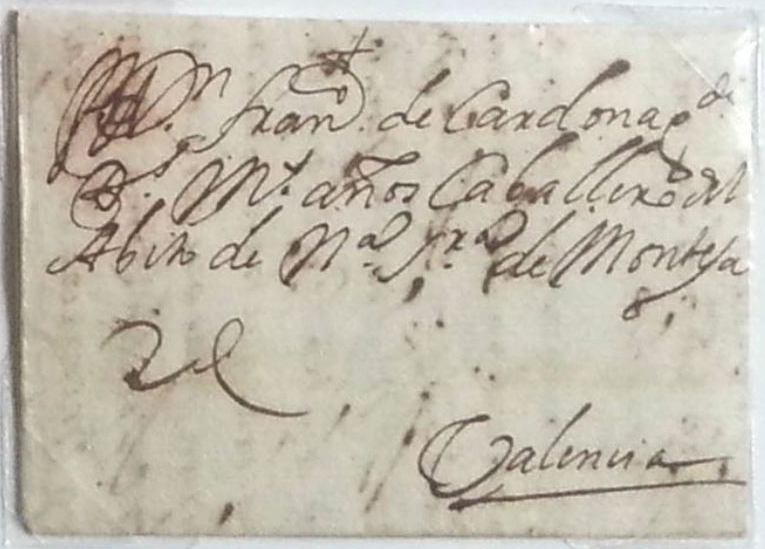 A D.n Fran.co de Cardona g.de
D.s M.s años Caballero del
Abito de N.a S.ra de Montesa
Valencia